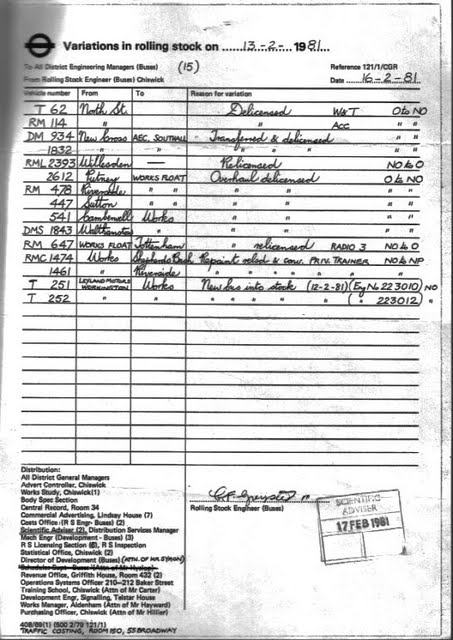 Variations in rolling stock on ....13-2-.....1981....
To All District Engineering Managers (Buses) (15) Reference 121/1/CGR
From Rolling Stock Engineer (Buses) Chiswick Date ....16-2-81
Vehicle number From To Reason for variation
T 62 North St. Delicensed W&T O to NO
RM 114 " " Acc " "
DM 934 New Cross AEC. SOUTHALL Transferred & delicensed " "
1832 " " " " " " "
RML 2393 Willesden — Relicensed NO to O
2612 Putney WORKS FLOAT Overhaul delicensed O to NO
RM 478 Riverside " " " " " "
447 Sutton " " " " " "
541 Camberwell Works " " " "
DMS 1843 Walthamstow " " " " "
RM 647 WORKS FLOAT Tottenham " relicensed RADIO 3 NO to O
RMC 1474 Works Shepherds Bush Repaint relcd & conv. PRIV. TRAINER NO to NP
1461 " Riverside " " " " " "
T 251 LEYLAND MOTORS WORKINGTON Works New bus into stock (12-2-81) (Eng No 223010) NO
T 252 " " " " " " ( " 223012) "
Distribution:
All District General Managers
Advert Controller, Chiswick
Works Study, Chiswick (1)
Body Spec Section
Central Record, Room 34
Commercial Advertising, Lindsay House (7)
Costs Office (R S Engr- Buses) (2)
Scientific Adviser (2), Distribution Services Manager
Mech Engr (Development - Buses) (3)
R S Licensing Section (6), R S Inspection
Statistical Office, Chiswick (2)
Director of Development (Buses)
Schedules Dept - Buses (Attn of Mr Hyslop)
Revenue Office, Griffith House, Room 432 (2)
Operations Systems Officer 210-212 Baker Street
Training School, Chiswick (Attn of Mr Carter)
Development Engr, Signalling, Telstar House
Works Manager, Aldenham (Attn of Mr Hayward)
Purchasing Officer, Chiswick (Attn of Mr Hillier)
408/69(1) (500 2/79 121/1)
TRAFFIC COSTING, ROOM 150, 55 BROADWAY
Rolling Stock Engineer (Buses)
SCIENTIFIC
ADVISER
17 FEB 1981